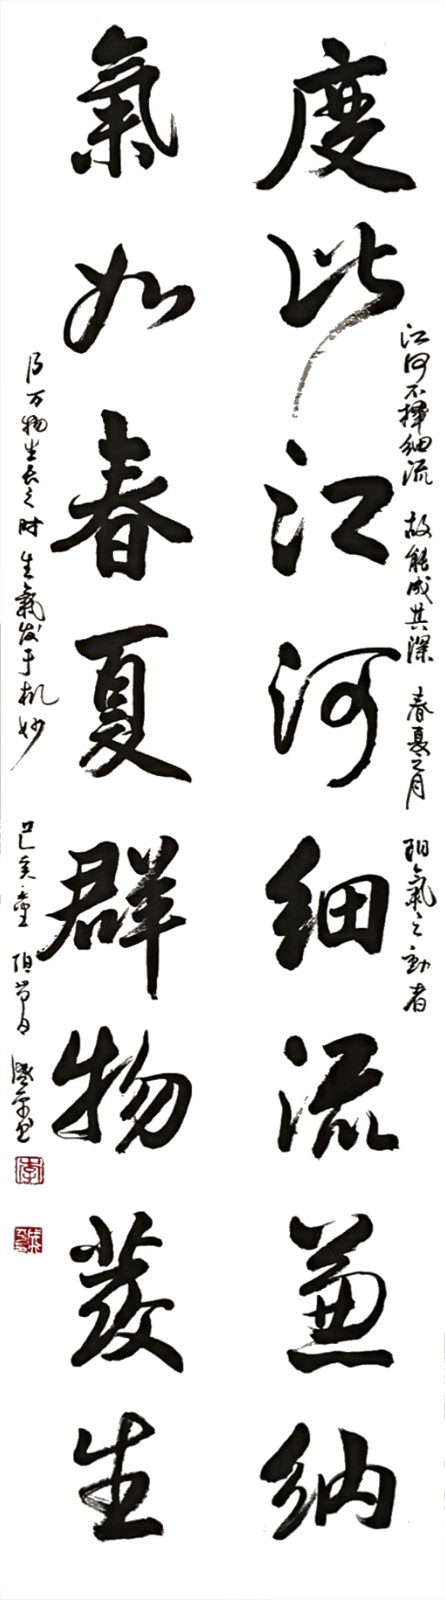 江河不择细流 故能成其深 春夏之月 阳氣之動者
度比江河细流兼纳
氣如春夏群物發生
乃万物生长之时 生氣发于机妙
己亥重阳节日